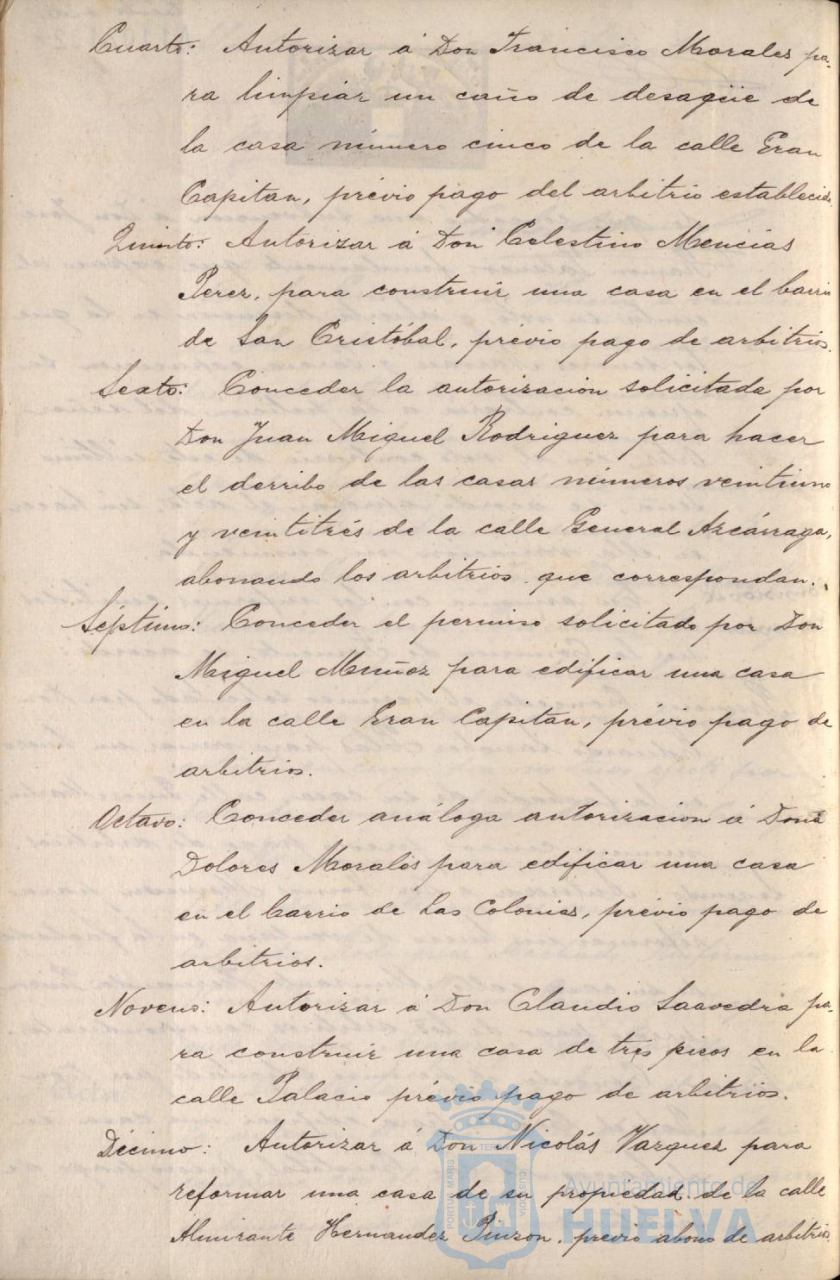 Cuarto: Autorizar á Don Francisco Morales pa-
ra limpiar un caño de desagüe de
la casa número cinco de la calle Gran
Capitan, prévio pago del arbitrio establecido.
Quinto: Autorizar á Don Celestino Mencías
Perez, para construir una casa en el barrio
de San Cristóbal, prévio pago de arbitrios.
Sexto: Conceder la autorización solicitada por
Don Juan Miguel Rodriguez para hacer
el derribo de las casas números veintiuno
y veintitrés de la calle General Azcárraga,
abonando los arbitrios que correspondan.
Séptimo: Conceder el permiso solicitado por Don
Miguel Muñoz para edificar una casa
en la calle Gran Capitan, prévio pago de
arbitrios.
Octavo: Conceder análoga autorizacion á Doña
Dolores Morales para edificar una casa
en el barrio de Las Colonias, prévio pago de
arbitrios.
Noveno: Autorizar á Don Claudio Saavedra pa-
ra construir una casa de tres pisos en la
calle Palacio prévio pago de arbitrios.
Décimo: Autorizar á Don Nicolás Vazquez para
reformar una casa de su propiedad de la calle
Almirante Hernandez Pinzon, prévio abono de arbitrios.
Ayuntamiento de
HUELVA
PORTUS MARIS ET TERRAE CUSTODIA